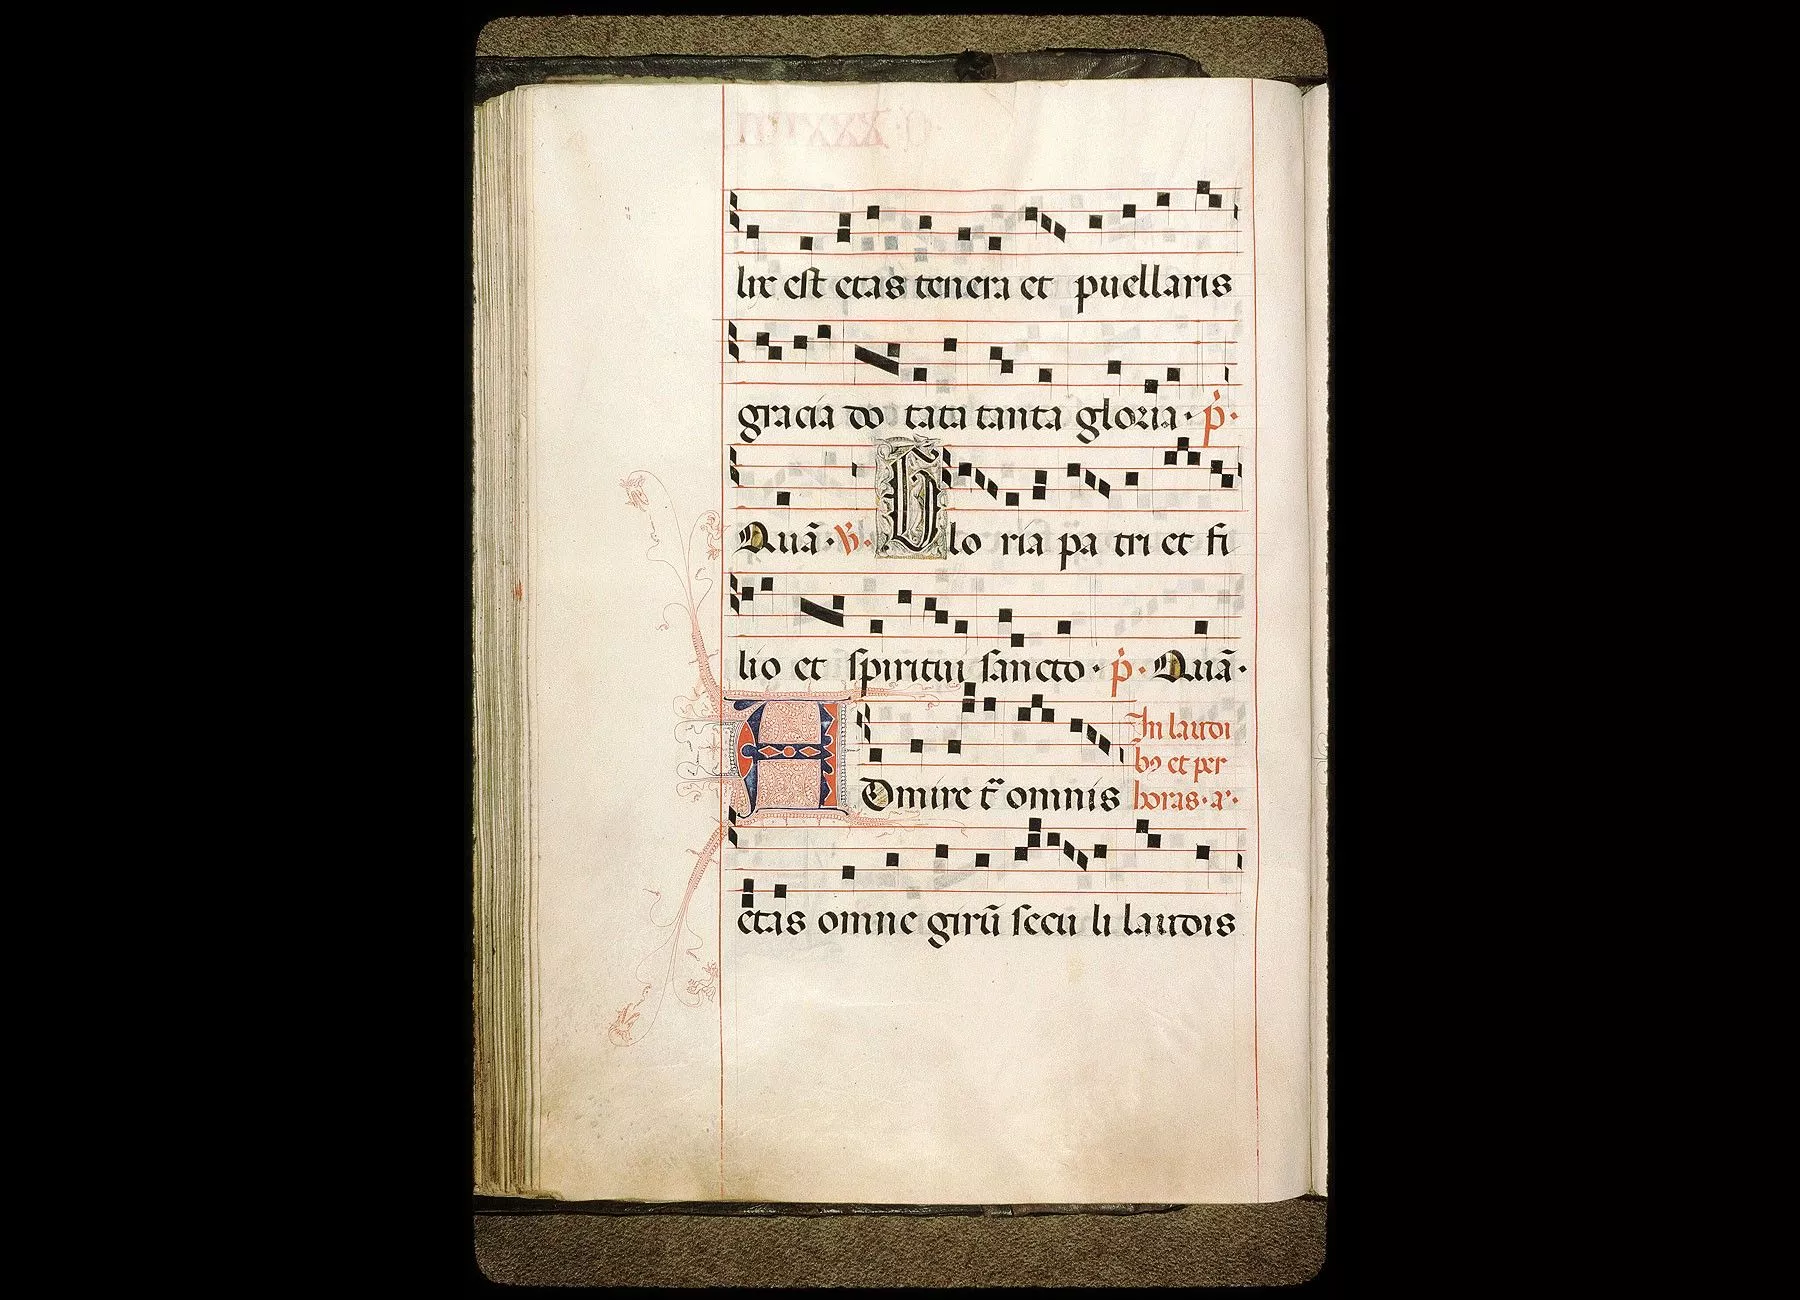 lix est etas tenera et puellaris
gracia do tata tanta gloria · p̃ ·
Quã · v̄ · Glo ria pa tri et fi
lio et spiritui sancto · p̃ · Quã ·
In laudi
bꝰ et per
ADmire t̃ omnis horas · aᷓ ·
etas omne girũ secu li laudis